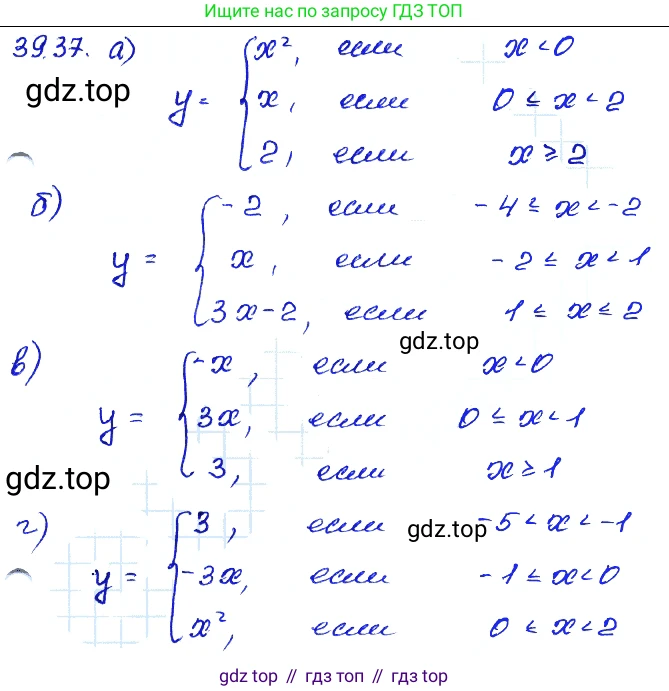 Ищите нас по запросу ГДЗ ТОП
39.37. а) y = { x², если x < 0
gdz.top
x, если 0 ≤ x < 2
2, если x ≥ 2
б) y = { -2, если -4 ≤ x < -2
x, если -2 ≤ x < 1
3x-2, если 1 ≤ x ≤ 2
gdz.top
в) y = { -x, если x < 0
3x, если 0 ≤ x < 1
3, если x ≥ 1
gdz.top
г) y = { 3, если -5 < x < -1
gdz.top
-3x, если -1 ≤ x < 0
x², если 0 ≤ x < 2
gdz top // гдз топ // gdz.top